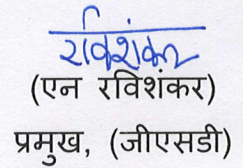 रविशंकर
(एन रविशंकर)
प्रमुख, (जीएसडी)